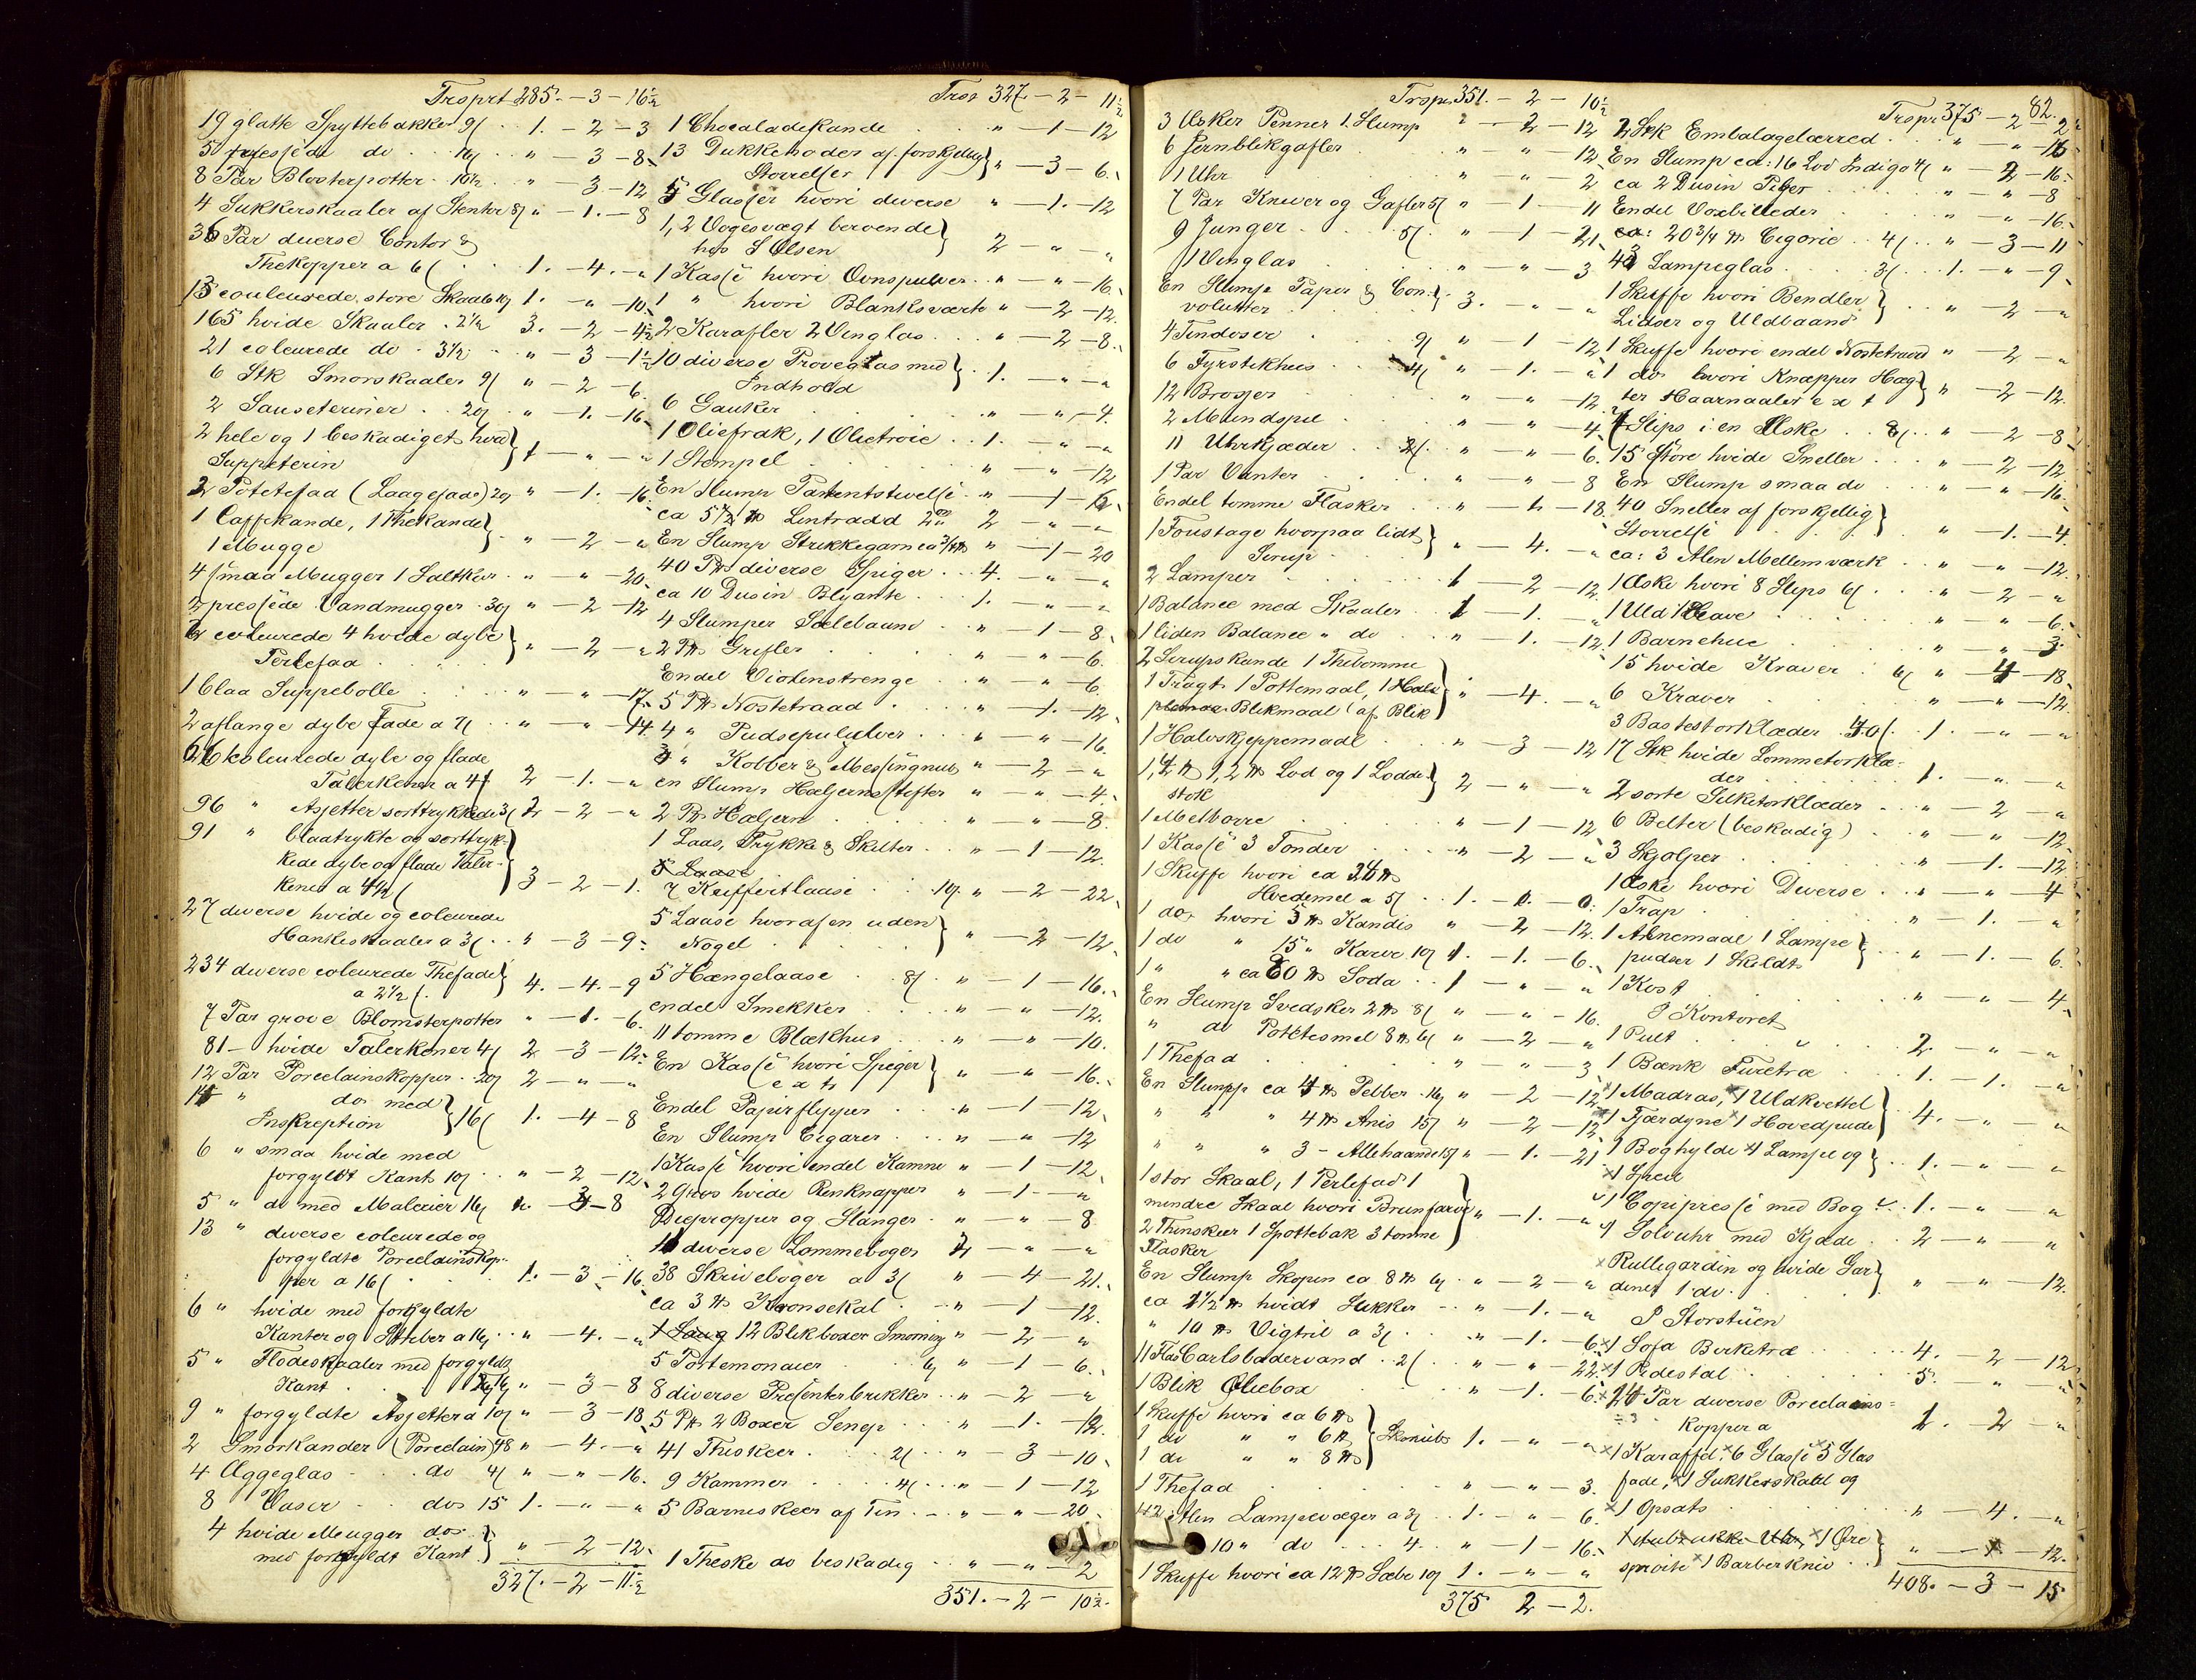 Trsprt 285. - 3 - 16½
19 glatte Spyttebakker 9/ . 1. - 2 - 3
50 pressede do . . 16/ . . " - 3 - 8
8 Par Blosterpotter 10½ . . " - 3 - 12
4 Sukkerskaaler af Stentøi 8/ " - 1. - 8
36 Par diverse Contor &
Thekopper a 6/ . . 1. - 4. - "
13 couleurede store Skaaler 1. - " - 10.
165 hvide Skaaler . 2½ 3. - 2 - 4½
21 coleurede do . 3½ . . " - 3 - 1½
6 Stk Smørskaaler 9/ " - 2 - 6.
2 Sauseteriner . . 20/ . " - 1. - 16
2 hele og 1 beskadiget hvid
Suppeterin 1 - " - "
2 Potetefad (Laagefade) 20/ " - 1. - 16
1 Caffekande, 1 Thekande
1 Mugge . " - 2 - "
4 smaa Mugger 1 Saltkar . . " - " - 20.
2 pressede Vandmugger . 30/ " - 2 - 12
2 coleurede 4 hvide dybe
Perlefad . . . " - 2 - "
1 blaa Suppebolle . . . " - " - 17.
2 aflange dybe Fade a 7/ . . " - " - 14.
26 koleurede dybe og flade
Talerkener a 4/ 2 - 1. - "
96 " Asjetter sorttrykkede 3/ 2 - 2 - "
91 " blaatrykte og sorttryk-
kede dybe og flade Taler-
kener a 4½/ 3 - 2 - 1.
27 diverse hvide og coleurede
Hankeskaaler a 3/ . . " - 3 - 9
234 diverse coleurede Thefade
a 2½/. 4. - 4. - 9
7 Par grove Blomsterpotter " - 1. - 6.
81 - hvide Talerkener 4/ 2 - 3 - 12
12 Par Porcelainskopper . 20/ 2 - " - "
14 " do med
Inskreption 16/ 1. - 4 - 8
6 " smaa hvide med
forgyldt Kant 10/ . . " - 2 - 12
5 " do med Malerier 16/ " . - 3 - 8
13 " diverse coleurede og
forgyldte Porcelainskop-
per a 16/ . . . 1. - 3 - 16
6 " hvide med forgyldte
Kanter og Striber a 16/ . . " - 4. - "
5 " Flødeskaaler med forgyldt
Kant . . . " - 3 - 8
9 " forgyldte Asjetter a 10/ " - 3 - 18
2 Smørkander (Porcelain) 48 " - 4. - "
4 Æggeglas . . do 4/ " - " - 16.
8 Vaser . . do 15 1. - " - "
4 hvide Mugger do
med forgyldt Kant " - 2 - 12
327. - 2 - 11½
Trsp 327. - 2 - 11½
1 Chocaladekande . . . " - 1 - 12
13 Dukkehoder af forskjellig
Størrelser " - 3 - 6.
5 Glasser hvori diverse " - 1. - 12
1, 2 Vogesvægt beroende
hos S Olsen 2 - " - "
1 Kasse hvori Ovnspulver . . " - " - 16
1 " hvori Blanksværte " - 2 - 12
2 Karafler 2 Vinglas . . " - 2 - 8.
10 diverse Prøveglas med
Indhold . 1. - " - "
6 Gauker . . . " - " - 4.
1 Oliefrak, 1 Olietrøie . . 1. - " - "
1 Stempel . . . " - " - 12
En Slump Pattentstivelse . " - 1 - 6
ca 5½ ℔ Lintraad 2 - " - "
En Slump Strikkegarn ca ¾ ℔ " - 1 - 20
40 ℔ diverse Spiger . . 4. - " - "
ca 10 Dusin Blyante . . 1. - " - "
4 Slumper Sælebaand . . " - 1 - 8
2 ℔ Grifler . . . " - " - 6.
Endel Violenstrenge . . " - " - 6
5 ℔ Nøstetraad . . . " - 1. - 12
4 " Pudsepulver . . . " - " - 16.
3 " Kobber & Messingnud " - 2 - "
en Slump Hæljernsstifter " - " - 4.
2 ℔ Hæljern . . . " - " - 8.
1 Laas, Trykke & Skilter . . " - 1 - 12.
5 Laase
7 Kuffertlaase . . 19/. " - 2 - 22
5 Laase hvoraf en uden
Nøgel . . . " - 2 - 12
5 Hængelaase . 8/. " - 1 - 16.
endel Smekker . . . " - " - 12.
11 tomme Blækhus . . . " - " - 10.
En Kasse hvori Spiger
e x tr " - " - 16.
Endel Papirflipper . . . " - 1 - 12
En Slump Cigarer . . . " - " - 12
1 Kasse hvori endel Kamme " - 1 - 12
2 Gros hvide Benknapper " - 1. - "
Diepropper og Slanger . " - " - 8
11 diverse Lommebøger 2 - " - "
38 Skrivebøger a 3/ " - 4 - 21.
ca 3 ℔ Kronsekal . . " - 1 - 12.
12 Blikboxer Smørning " - 2 - "
5 Portemonaier 6/ " - 1 - 6.
8 diverse Presenterbrikker . . " - 2 - "
5 ℔ 2 Boxer Senep . . " - 1. - 12.
41 Theskeer . . . 2/ " - 3 - 10
9 Kammer . . . 4/ . . " - 1 - 12
5 Barneskeer af Tin . . " - " - 20
1 Theske do beskadig . . " - " - 2
351. - 2 - 10½
Trspr 351. - 2 - 10½
3 Æsker Penner 1 Slump " - 2 - 12
6 Jernblikgafler . . . " - " - 12
1 Uhr . . . " - " - 2
7 Par Kniver og Gafler 5/ " - 1 - 11
9 Junger . . . 5/. " - 1 - 21
1 Vinglas . . . " - " - 3
En Slump Papir & Con-
volutter . 3. - " - "
4 Tindoser . . 9/ " - 1 - 12
6 Fyrstikhus . . 4/ " - 1. - "
12 Brosjer . . . " - " - 12
2 Mundspil . . . " - " - 4.
11 Uhrkjæder . . 2/. " - " - 6.
1 Par Vanter . . . " - " - 8
Endel tomme Flasker . . " - 1 - 18
1 Foustage hvorpaa lidt
Sirup . . . " - 4. - "
2 Lamper . . . 1 - 2 - 12
1 Balance med Skaaler . . 1 - 1. - "
1 liden Balance " do . . " - 1. - 12
2 Sirupskande 1 Thebomme
1 Tragt 1 Pottemaal, 1 Halv
Blikmaal (af Blik " - 4. - "
1 Halvskjeppemaal . . " - 3 - 12
1, 4 ℔ 1, 2 ℔ Lod og 1 Lodde-
stok 2 - " - "
1 Melbørre . . . " - 1 - 12
1 Kasse 3 Tønder . . " - 2 - "
1 Skuffe hvori ca 24 ℔
Hvedemel a 5/ . 1. - 0. - 0.
1 do hvori 5 ℔ Kandis " - 2 - 12.
1 do " 15 " Karve 10/ 1. - 1. - 6.
1 " " ca 60 ℔ Soda . . 1 - " - "
En Slump Svedsker 2 ℔ 8/ " - " - 16.
" do Potetesmel 8 ℔ 6/ " - 2 - "
1 Thefad . . . " - " - 3
En Slump ca 4 ℔ Pebber 16/ " - 2 - 12
" " " 4 ℔ Anis 15/ " - 2 - 12
" " " 3 - Allehaande 15/ " - 1. - 21
1 stor Skaal, 1 Perlefad 1
mindre Skaal hvori Brunfarve " - 1. - "
2 Thinskeer 1 Spottebak 3 tomme
Flasker
En Slump Skopin ca 8 ℔ 6/ . " - 2 - "
ca 2½ ℔ hvidt Sukker . . " - 1. - "
" 10 ℔ Vigtril a 3/ . . " - 1. - 6
11 Flas Carlsbadervand . . 2/ . " - " - 22
1 Blik Oliebox . . . " - 1. - 6
1 Skuffe hvori ca 6 ℔
1 do " " 6 ℔ 1. - " - "
1 do " " 8 ℔
1 Thefad . . . " - " - 3.
42 Alen Lampevæger a 3/ . 1. - " - 6
10 " do . . . 4. " - 1 - 16
1 Skuffe hvori ca 12 ℔ Sæbe 10/ 1. - " - "
375 2 - 2.
82.
Trspr 375 - 2 - 2
2 Stk Embalagelærred . . . " - " - 16
En Slump ca: 16 Lod Indigo 4/ " - 2 - 16
ca 2 Dusin Piber . . . " - " - 8
Endel Voxbilleder . . . " - " - 16.
ca: 20¾ ℔ Cigorie . . 4/. . " - 3 - 11
43 Lampeglas . . . 3/. . 1. - " - 9
1 Skuffe hvori Bendler
Lidser og Uldbaand " - 2 - "
1 Skuffe hvori endel Nøstetraad " - 2 - "
1 do hvori Knapper Hæg-
ter Haarnaaler e x t " - 2 - 12.
7 Slips i en Æske . . 8/. . " - 2 - 8
15 Store hvide Sneller . . " - 2 - 12
En Slump smaa do . . " - " - 16
40 Sneller af forskjellig
Størrelse . . . " - 1. - 4.
ca: 3 Alen Mellemværk . . " - " - 12.
1 Æske hvori 8 Slips 6/ . . " - 2 - "
1 Uld Krave . . . " - " - 6.
1 Barnehue . . . " - " - 3
15 hvide Kraver . 6/ " - 4 - 18
6 Kraver . . . " - " - 12.
3 Bastestørklæder 40/. . 1. - " - "
17 Stk hvide Lommetørklæ-
der . . . 1. - " - "
2 sorte Silketørklæder . . " - 2 - "
6 Belter (beskadig) . . " - " - 12
3 Skjolper . . . " - 1. - 12.
1 Æske hvori Diverse . . " - " - 4
1 Trap . . . " - 1. - "
1 Alnemaal 1 Lampe
pudser 1 Skildt " - 1. - 6.
1 Kost . . . " - " - 4
I Kontoret
1 Pult . . . 2. - " - "
1 Bænk Furetræ . . 1. - 1. - "
1 Madras, 1 Uldkvettel
1 Fjærdyne 1 Hovedpude 4. - " - "
1 Boghylde 1 Lampe og
1 Speil . . 1. - " - "
1 Copipresse med Bog . 1. - " - "
1 Sølvuhr med Kjæde . . 2 - " - "
Rullegardin og hvide Gar-
diner 1 do . . . " - " - 12.
I Storstuen
1 Sofa Birketræ . . . 4. - 2 - 12
1 Pidestal . . . 5. " "
24 Par diverse Porcelains=
kopper a . . . 1. - 2 - "
1 Karaffel, 6 Glasse 3 Glas
fade, 1 Sukkerskaal og
1 Opsats . . . " - 4. - "
1 Øre
sprøite 1 Barberkniv . . " - - 12.
408. - 3 - 15